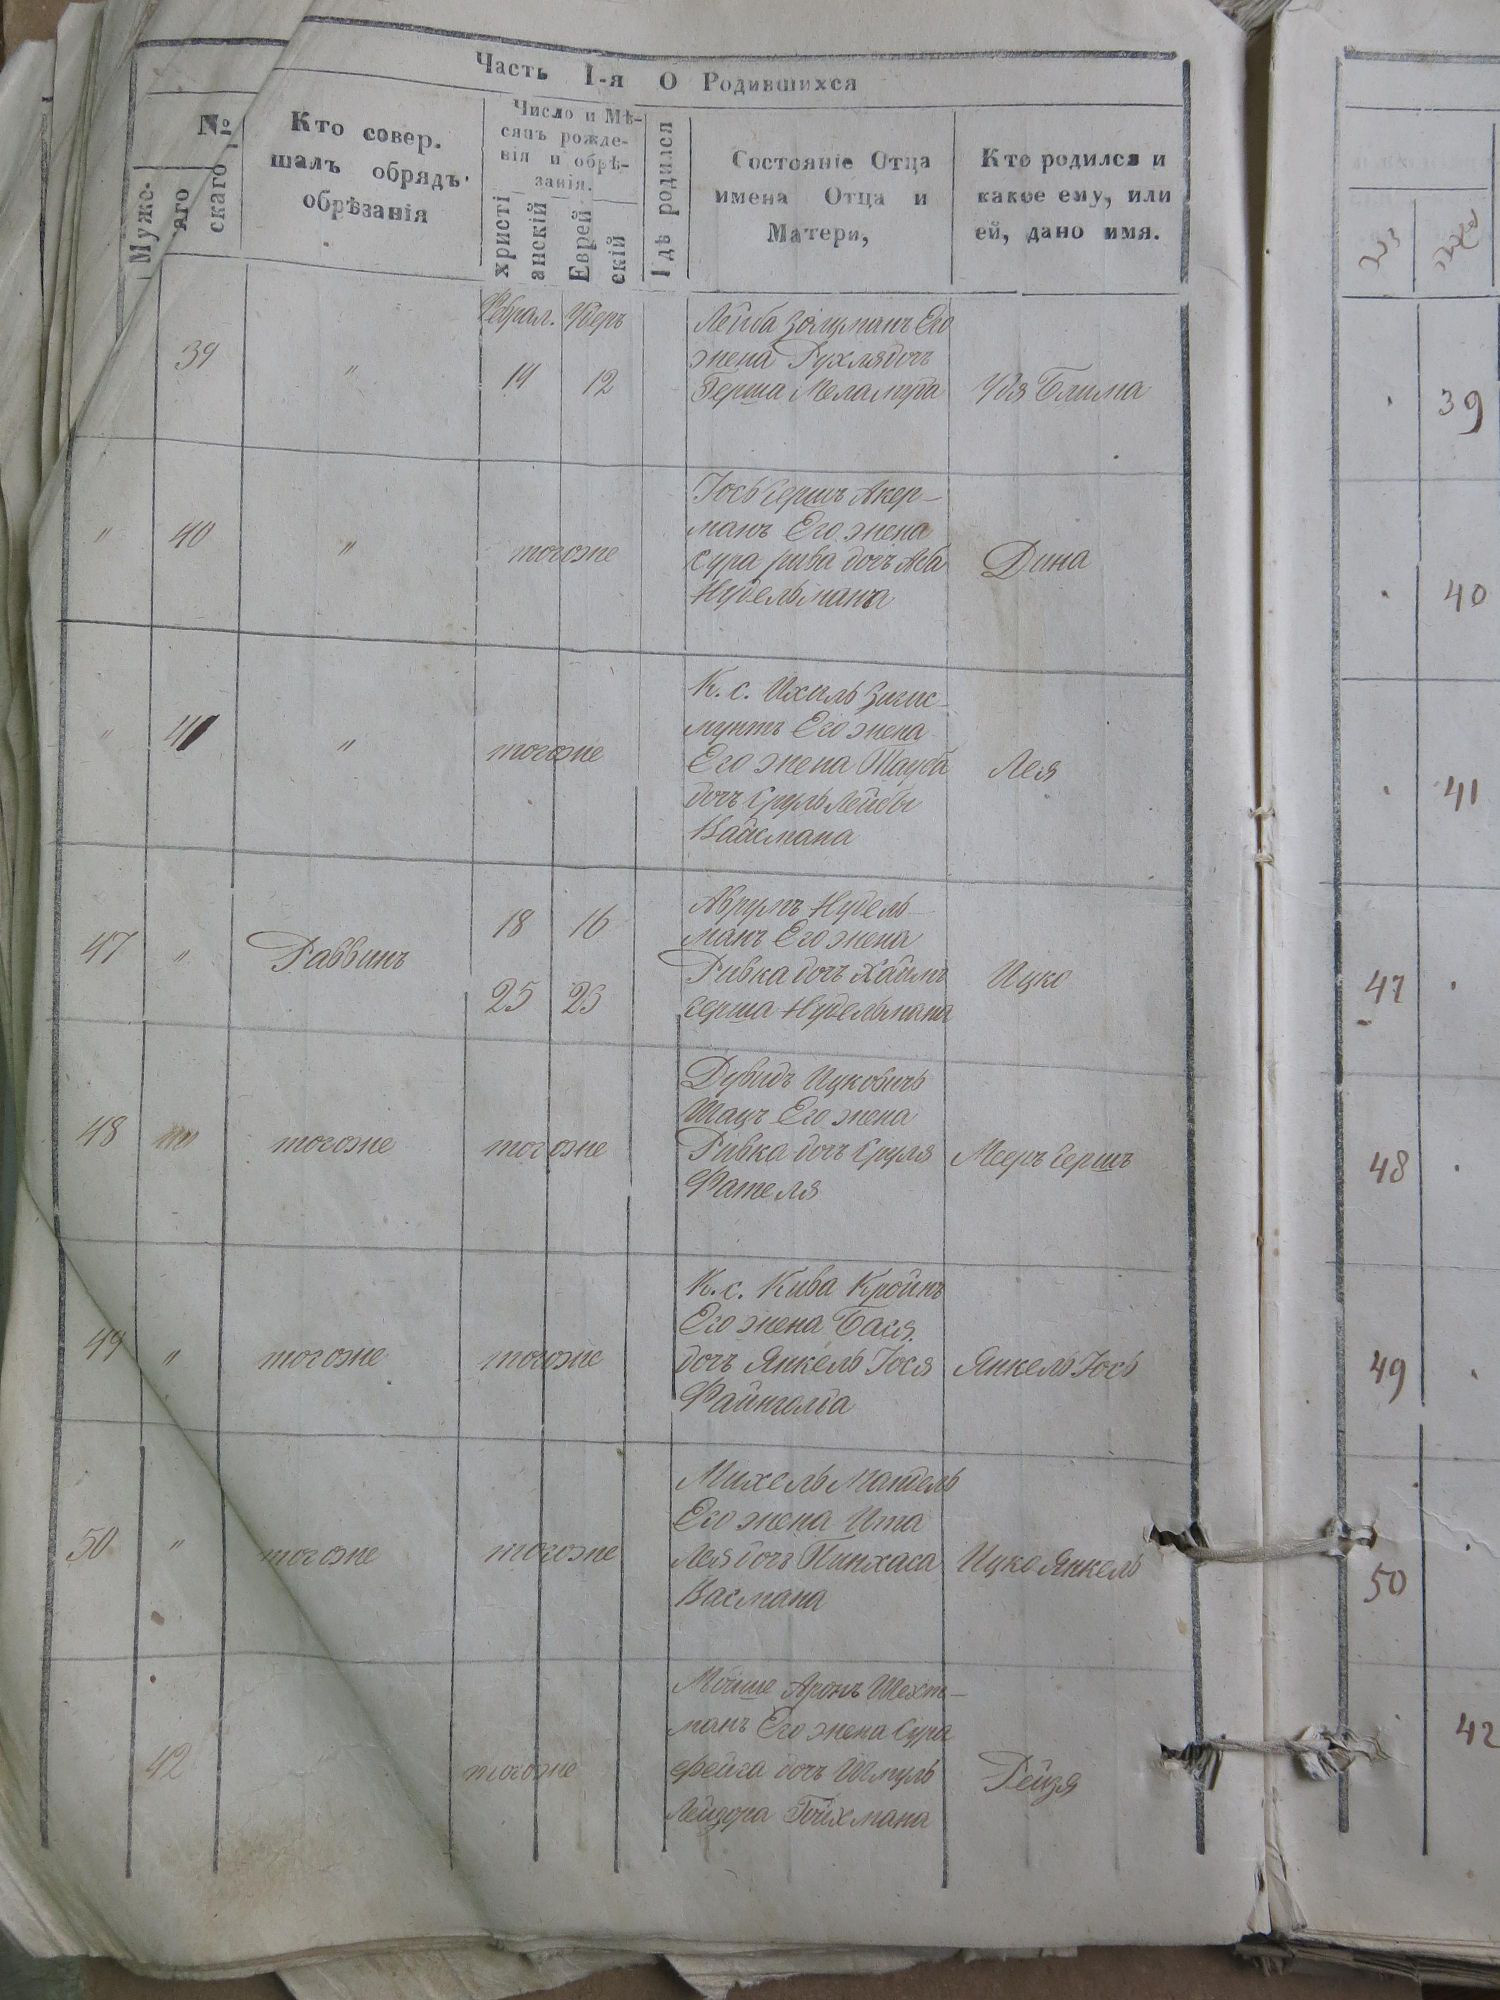 Часть I-я О Родившихся
№
Мужс-
каго
скаго
Кто совер-
шалъ обрядъ
обрѣзанія
Число и Мѣ-
сяцъ рожде-
нія и обрѣ-
занія.
христі
анскій
Еврей
скій
Гдѣ родился
Состояніе Отца
имена Отца и
Матери,
Кто родился и
какое ему, или
ей, дано имя.
39
"
Феврал.
14
12
Лейба Его
жена Рухля дочъ
Герша Меламуда
Удя Блима
40
"
тогоже
Іось Гершъ Акер-
манъ Его жена
Сура рива дочъ Аба
Нудельмана
Дина
41
"
тогоже
К. с. Ихиль Зигис-
мунтъ Его жена
Его жена Тауба
дочъ Сруль Лейбы
Вайсмана
Лея
47
"
Раввинъ
18
16
25
23
Аврумъ Нудель-
манъ Его жена
Ривка дочъ Хаимъ
герша Нудельмана
Ицко
48
тогоже
тогоже
Дувидъ Ицковичъ
Шацъ Его жена
Ривка дочъ Сруля
Фателя
Мееръ Гершъ
49
"
тогоже
тогоже
К. с. Кива Кройнъ
Его жена Бася
дочъ Янкель Іося
Файнгелда
Янкель Іось
50
"
тогоже
тогоже
Михель Мандель
Его жена Ита
Лея дочъ Пинхаса
Васмана
Ицко Янкель
42
тогоже
Мойше Аронъ Шехт-
манъ Его жена Сура
фейга дочъ Шмуль
Лейзора Гойхмана
Рейзя
39
40
41
47
48
49
50
42